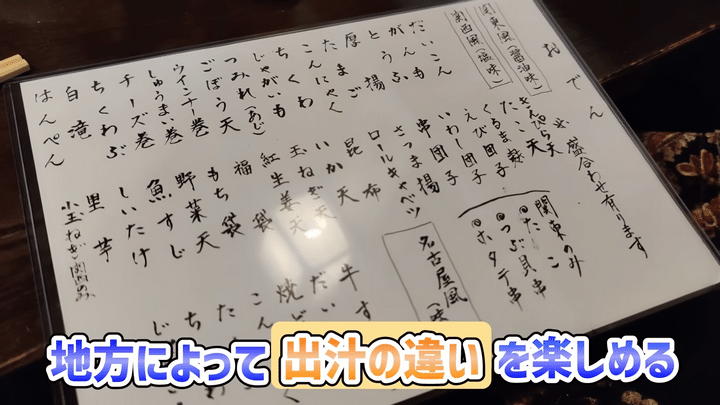 おでん
※盛合わせ有ります
関東風(醤油味)
関西風(塩味)
だいこん
がんも
とうふ
厚揚
たまご
こんにゃく
ちくわ
じゃがいも
つみれ(あじ)
ごぼう天
ウインナー巻
しゅうまい巻
チーズ巻
ちくわぶ
白滝
はんぺん
きんぴら天
くるま麩
えび団子
いわし団子
串団子
さつま揚
ロールキャベツ
昆布
いか天
玉ねぎ天
紅生姜天
福袋
もち袋
野菜天
魚すじ
しいたけ
里芋
小玉ねぎ
関東のみ
◎たこ
◎つぶ貝串
◎ホタテ串
名古屋風(味
牛す
だい
焼
こん
た
ち
じ
地方によって出汁の違いを楽しめる